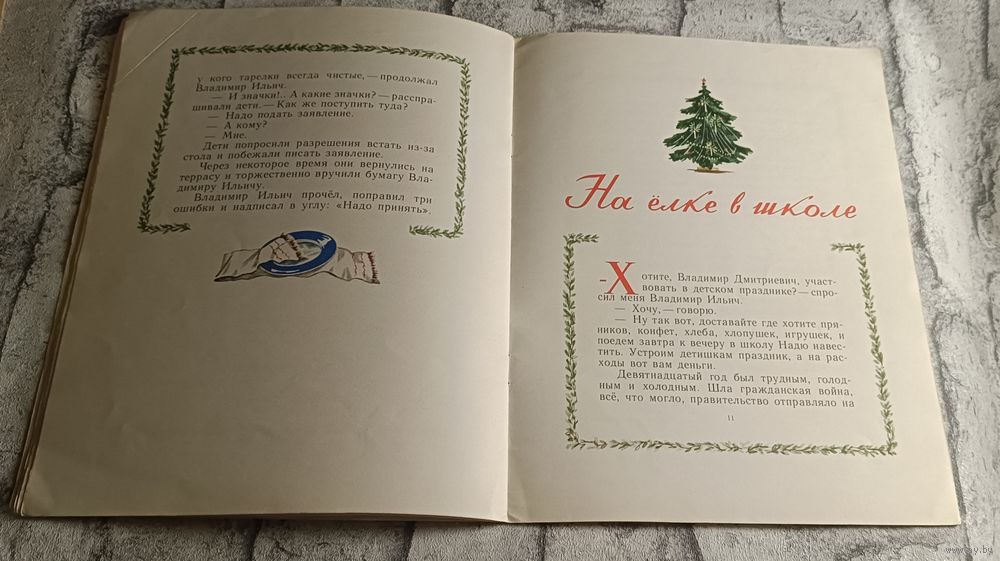 у кого тарелки всегда чистые, — продолжал
Владимир Ильич.
— И значки!.. А какие значки? — расспра-
шивали дети. — Как же поступить туда?
— Надо подать заявление.
— А кому?
— Мне.
Дети попросили разрешения встать из-за
стола и побежали писать заявление.
Через некоторое время они вернулись на
террасу и торжественно вручили бумагу Вла-
димиру Ильичу.
Владимир Ильич прочёл, поправил три
ошибки и надписал в углу: «Надо принять».
На ёлке в школе
-Хотите, Владимир Дмитриевич, участ-
вовать в детском празднике? — спро-
сил меня Владимир Ильич.
— Хочу, — говорю.
— Ну так вот, доставайте где хотите пря-
ников, конфет, хлеба, хлопушек, игрушек, и
поедем завтра к вечеру в школу Надю навес-
тить. Устроим детишкам праздник, а на рас-
ходы вот вам деньги.
Девятнадцатый год был трудным, голод-
ным и холодным. Шла гражданская война,
всё, что могло, правительство отправляло на
11
www.ay.by